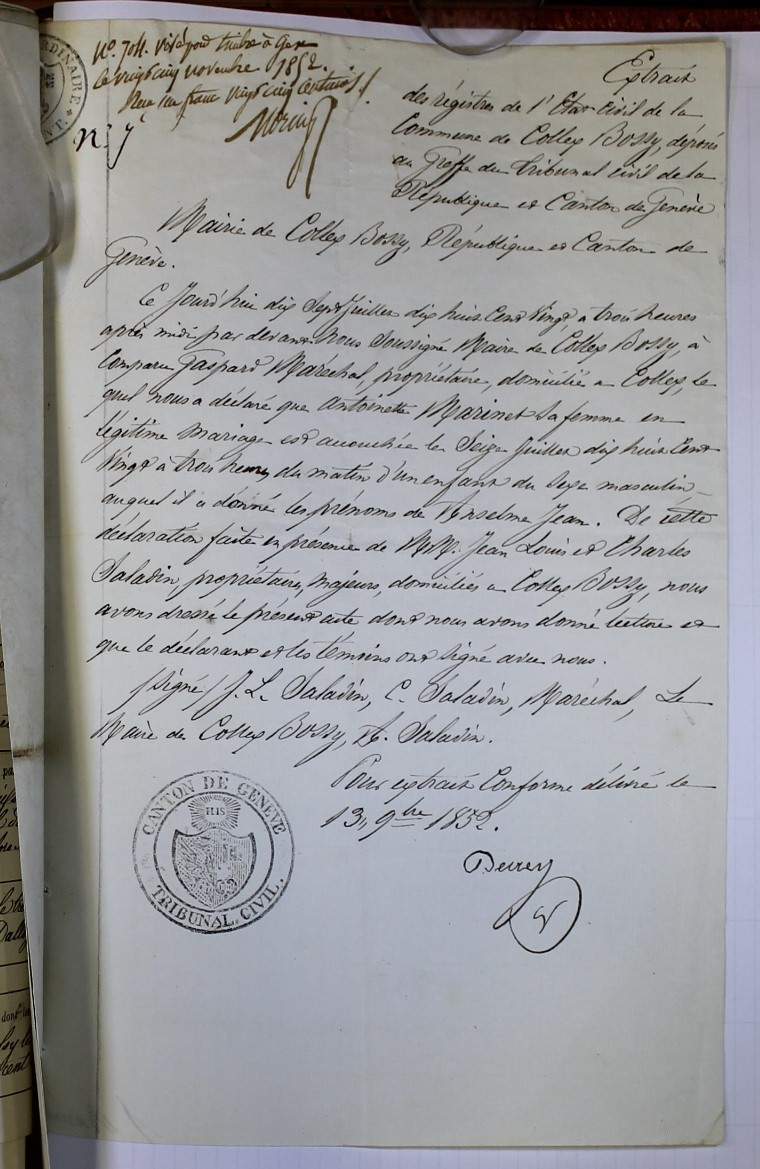 N°. 704. Visé pour timbre à Gex
Le vingt cinq novembre 1852.
Reçu un franc vingt cinq centimes
N. 7
Extrait
des régistres de l'Etat civil de la
Commune de Collex Bossy, déposés
au Greffe du Tribunal civil de la
République et Canton de Genève
Mairie de Collex Bossy, République et Canton de
Genève.
Ce Jourd'hui dix Sept Juillet dix huit Cent Vingt, à trois heures
après midi par devant Nous Soussigné Maire de Collex Bossy, à
Comparu Gaspard Maréchal, propriétaire, domicilié à Collex, le
quel nous a déclaré que Antoinette Marinet sa femme en
légitime mariage est accouchée le Seize Juillet dix huit Cent
Vingt à trois heures du matin d'un enfant du Sexe masculin
auquel il a donné les prénoms de Anselme Jean. De cette
déclaration faite en présence de MM. Jean Louis et Charles
Saladin, propriétaires, majeurs, domiciliés à Collex Bossy, nous
avons dressé le présent acte dont nous avons donné lecture et
que le déclarant et les témoins ont signé avec nous.
/Signé/ J. L. Saladin, C. Saladin, Maréchal, Le
Maire de Collex Bossy, A. Saladin.
Pour extrait Conforme délivré le
13, 9bre 1852.
CANTON DE GENEVE
IHS
TRIBUNAL CIVIL.